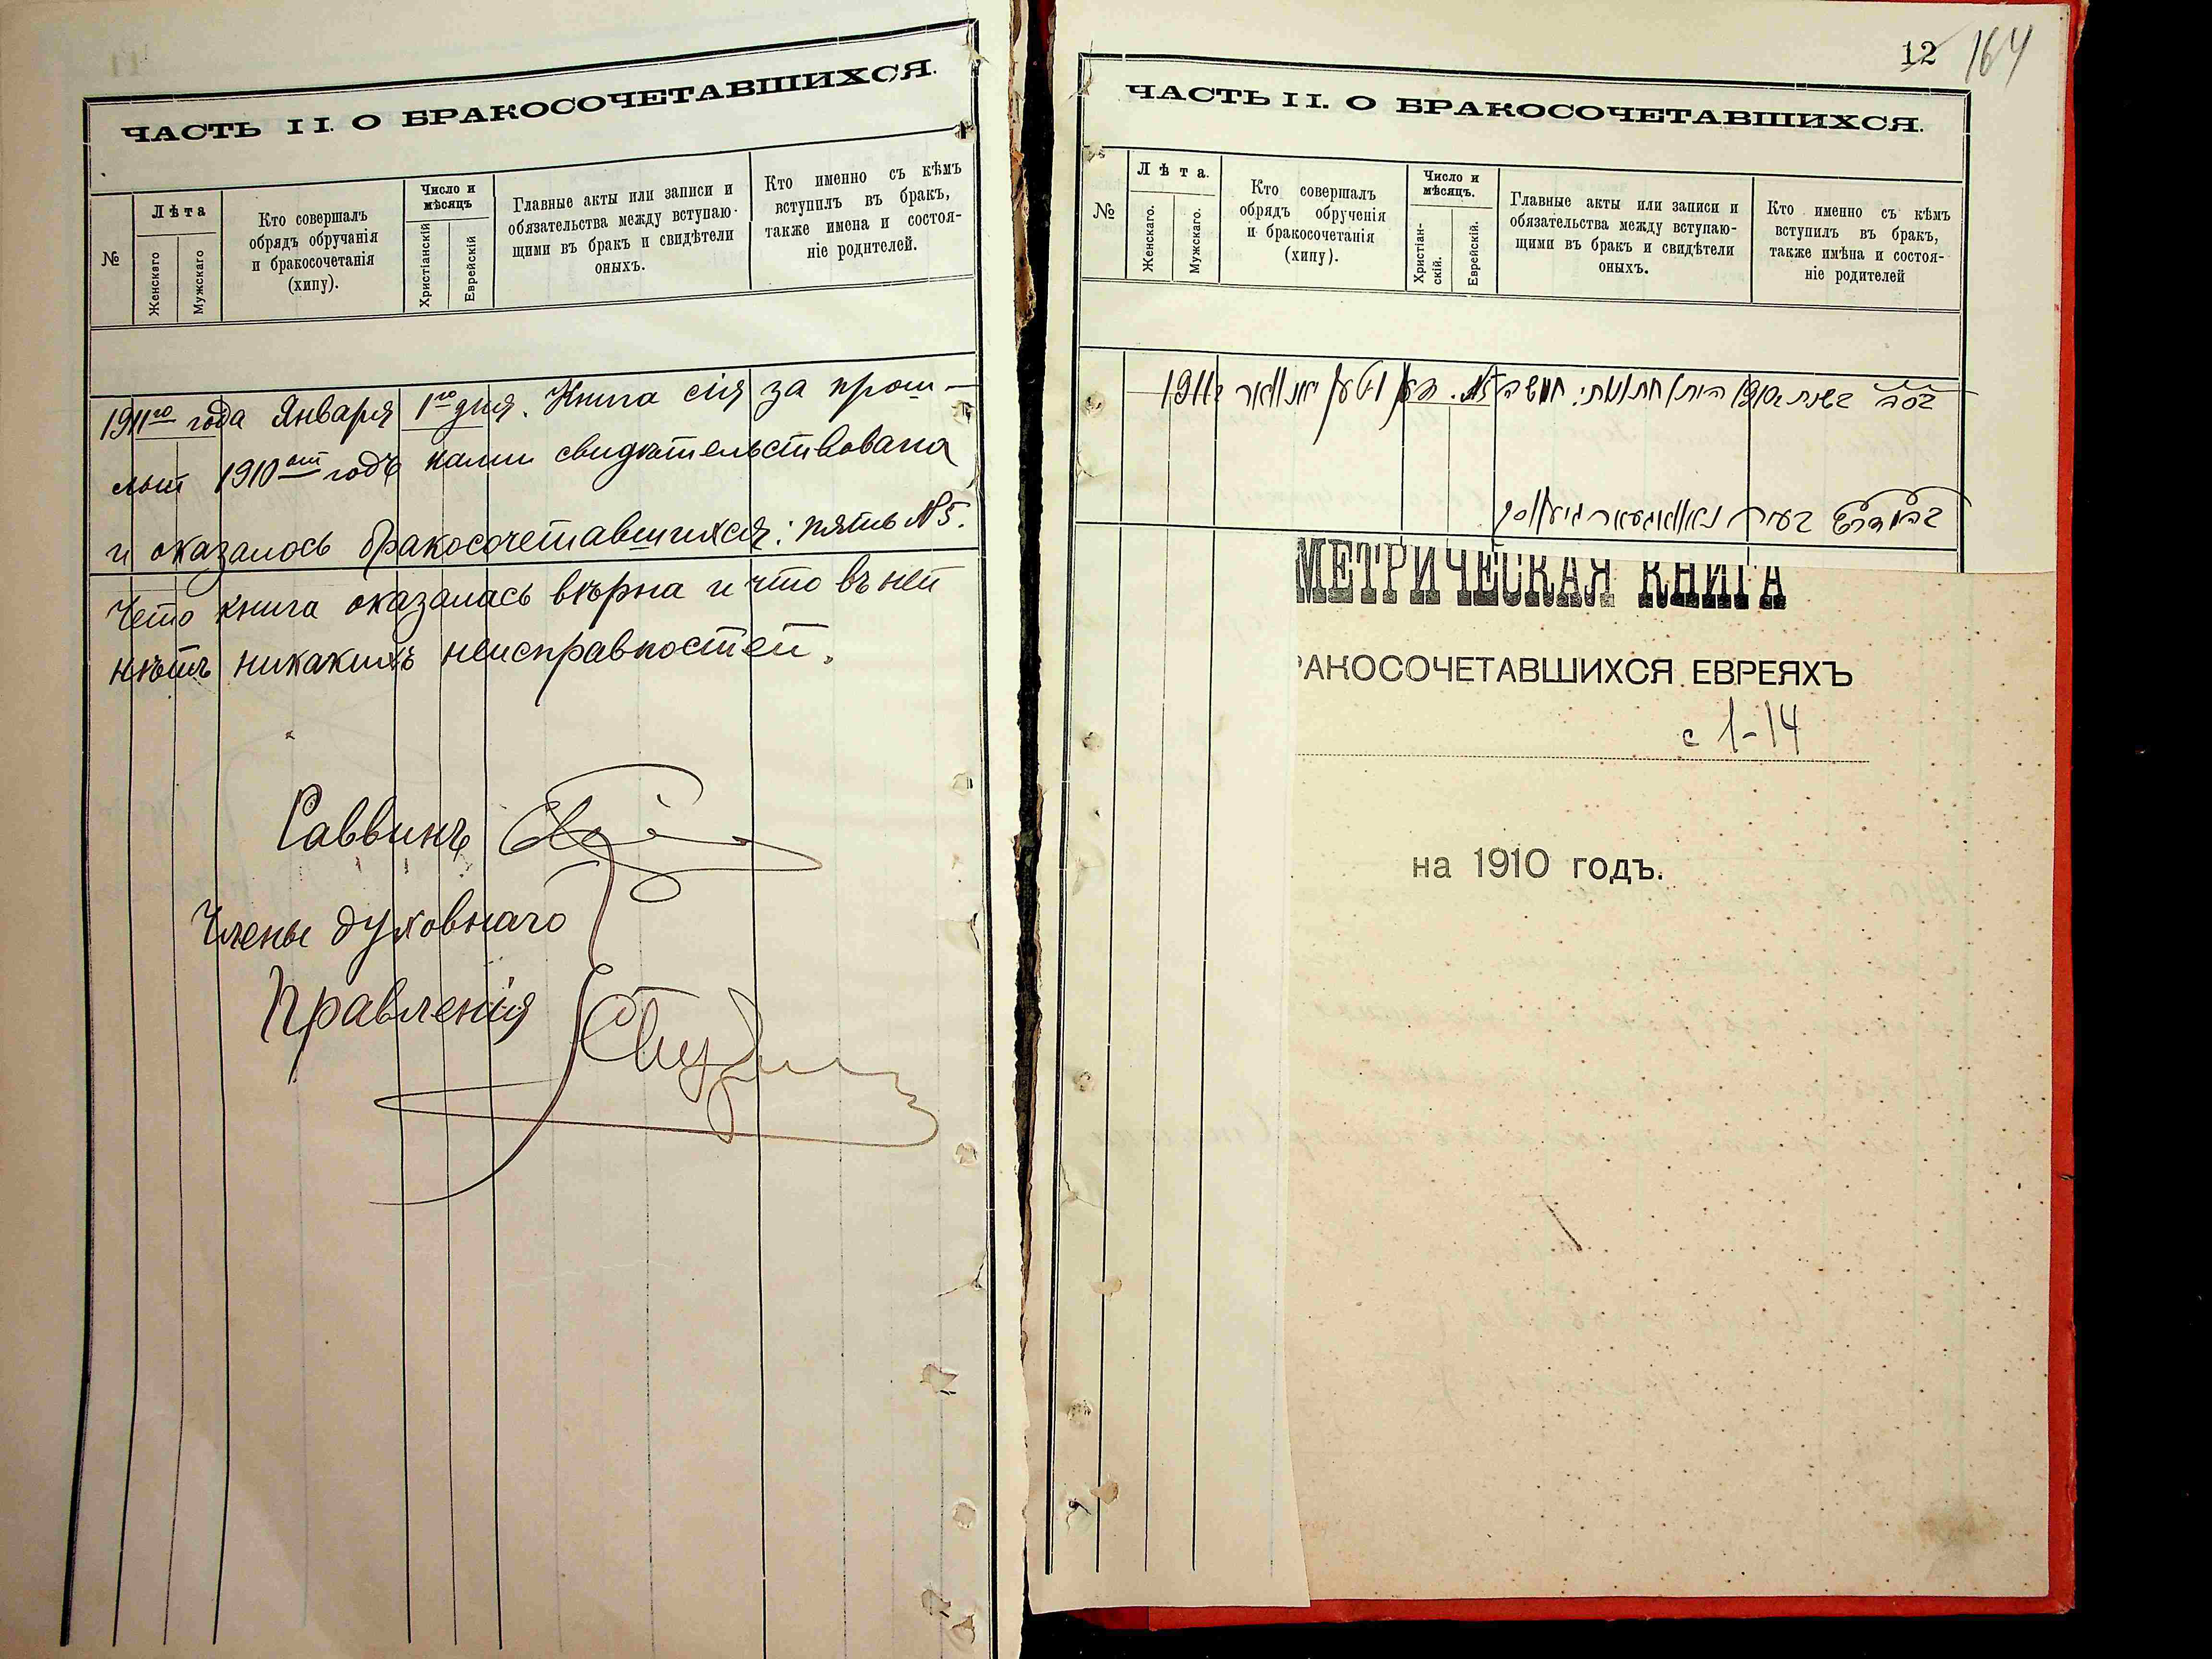 ЧАСТЬ II. О БРАКОСОЧЕТАВШИХСЯ.
№
Лѣта
Женскаго
Мужскаго
Кто совершалъ
обрядъ обручанія
и бракосочетанія
(хипу).
Число и
мѣсяцъ
Христіанскій
Еврейскій
Главные акты или записи и
обязательства между вступаю-
щими въ бракъ и свидѣтели
оныхъ.
Кто именно съ кѣмъ
вступилъ въ бракъ,
также имена и состоя-
ніе родителей.
1911го года Января 1го дня. Книга сія за прош-
лый 1910ый годъ нами свидѣтельствована
и оказалось бракосочетавшихся: пять №5.
Чето книга оказалась вѣрна и что въ ней
нѣтъ никакихъ неисправностей.
Раввинъ
Члены духовнаго
Правленія
12 164
ЧАСТЬ II. О БРАКОСОЧЕТАВШИХСЯ.
№
Лѣта.
Женскаго.
Мужскаго.
Кто совершалъ
обрядъ обрученія
и бракосочетанія
(хипу).
Число и
мѣсяцъ.
Христіан-
скій.
Еврейскій.
Главные акты или записи и
обязательства между вступаю-
щими въ бракъ и свидѣтели
оныхъ.
Кто именно съ кѣмъ
вступилъ въ бракъ,
также имѣна и состоя-
ніе родителей
בשנת 1910 יאנוואר 1911
בעיר
МЕТРИЧЕСКАЯ КНИГА
РАКОСОЧЕТАВШИХСЯ ЕВРЕЯХЪ
с 1-14
на 1910 годъ.